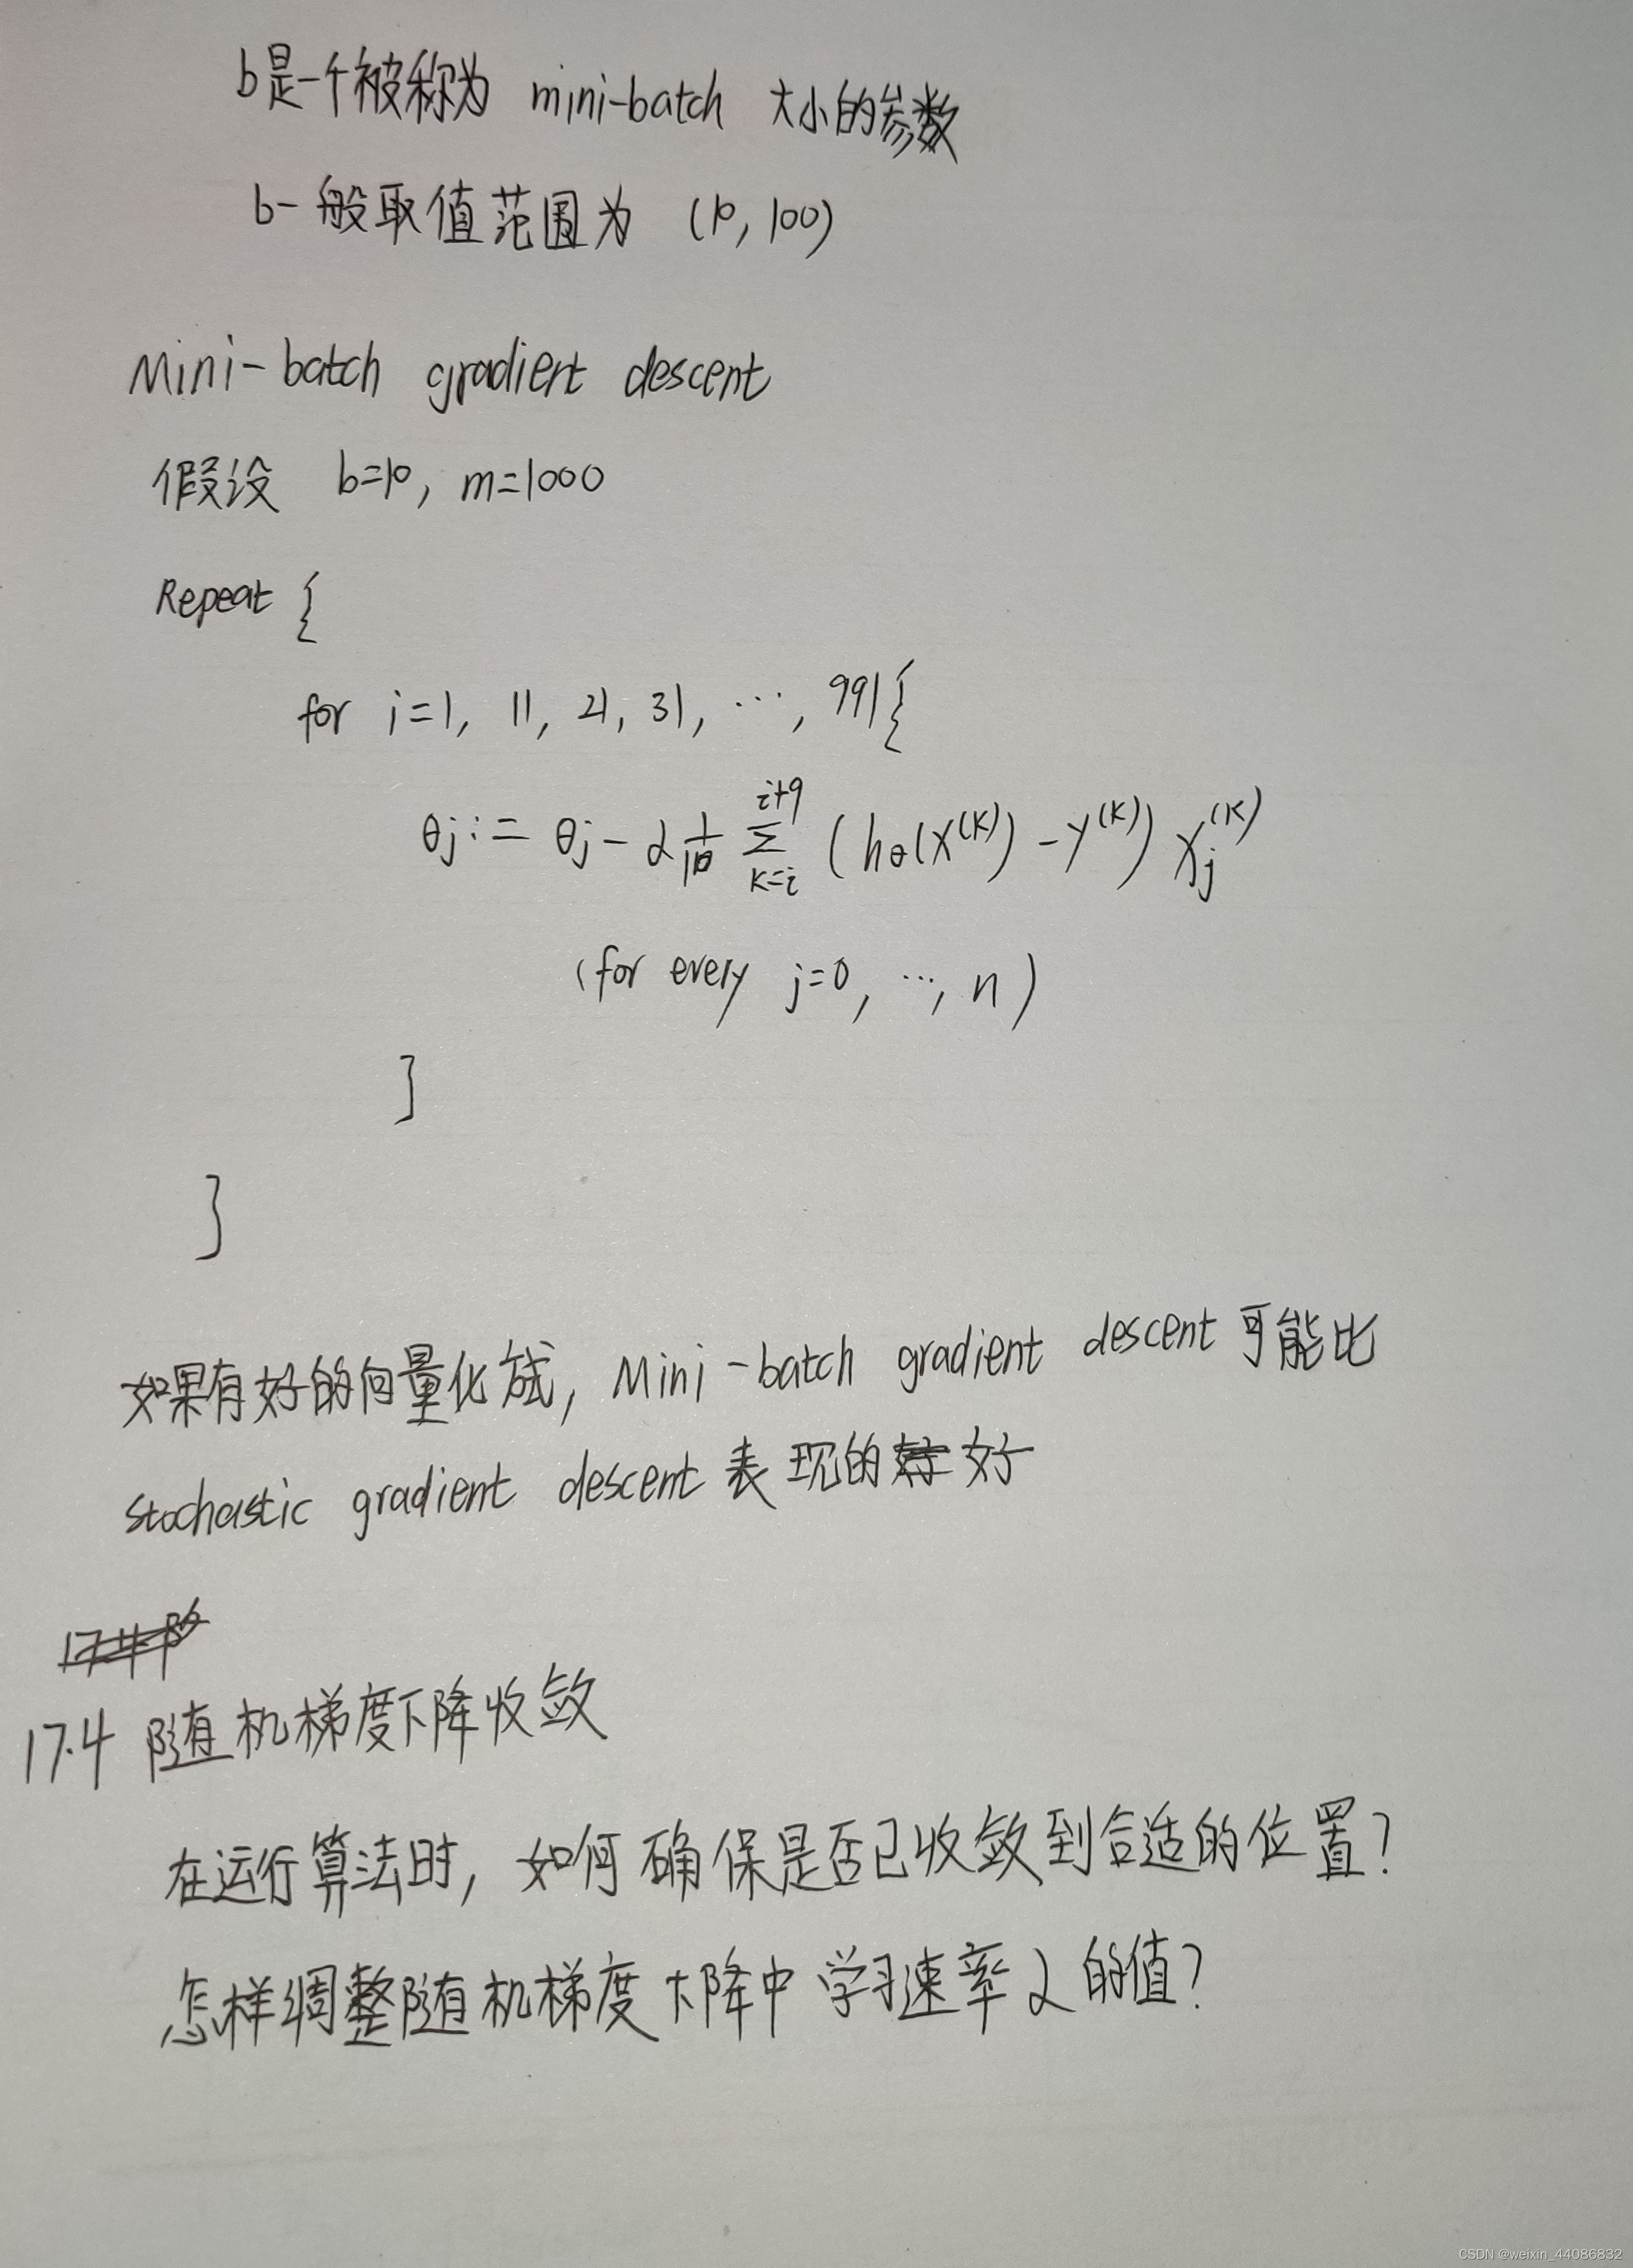 b是一个被称为 mini-batch 大小的参数
b一般取值范围为 (10, 100)
Mini-batch gradient descent
假设 b=10, m=1000
Repeat {
for i=1, 11, 21, 31, ..., 991{
θj := θj - α 1/10 Σ_{k=i}^{i+9} (hθ(x^(k)) - y^(k)) xj^(k)
(for every j=0, ..., n)
}
}
如果有好的向量化方式, Mini-batch gradient descent 可能比
stochastic gradient descent 表现的好
17.4 随机梯度下降收敛
在运行算法时, 如何确保是否已收敛到合适的位置?
怎样调整随机梯度下降中学习速率 α 的值?
CSDN @weixin_44086832